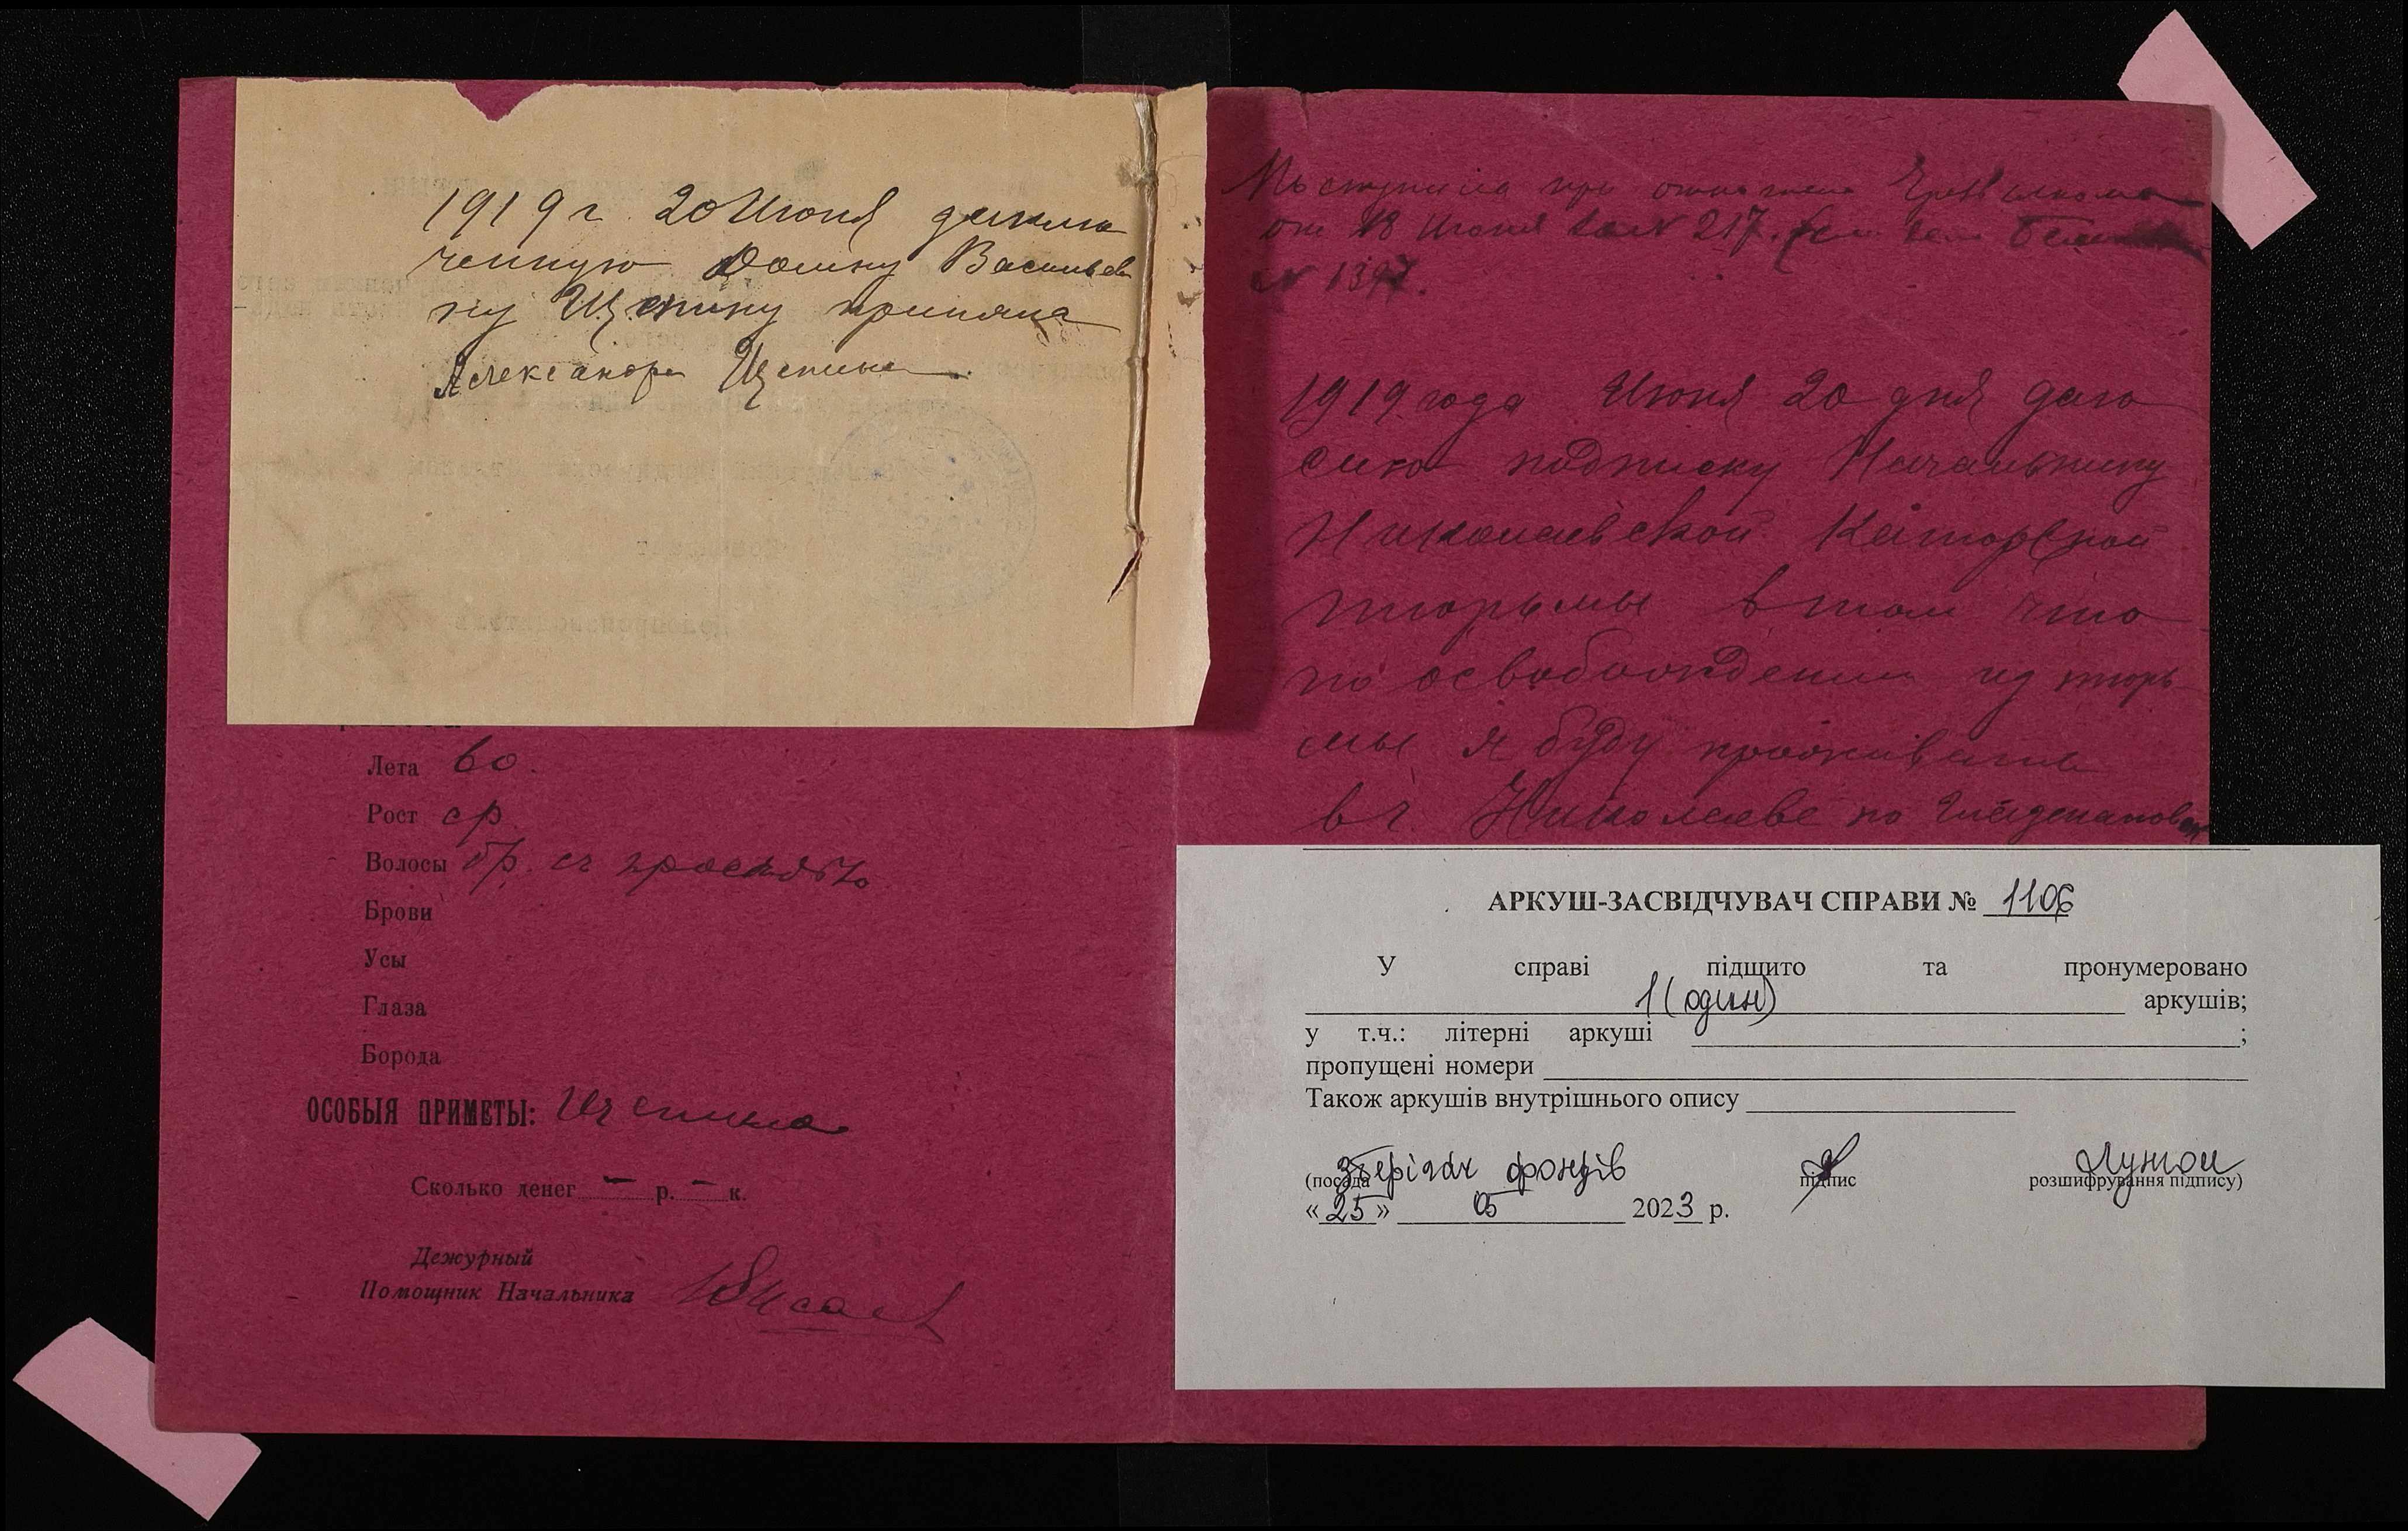 1919 г 20 Июня заклю
ченную Домну Васильев
ну Щепину приняла
Александра Щепина
Лета 60.
Рост ср
Волосы бр. съ просѣдью
Брови
Усы
Глаза
Борода
ОСОБЫЯ ПРИМЕТЫ: Щепина
Сколько денег - р. - к.
Дежурный
Помощник Начальника
Поступила при отношении
от 18 Июня за № 217.
№ 1397.
1919 года Июня 20 дня даю
сию подписку Начальнику
Николаевской Каторжной
тюрьмы в том что
по освобождении из тюрь
мы я буду проживать
в г. Николаеве по
АРКУШ-ЗАСВІДЧУВАЧ СПРАВИ № 1106
У справі підшито та пронумеровано
1 (один) аркушів;
у т.ч.: літерні аркуші ;
пропущені номери
Також аркушів внутрішнього опису
Зберігач фондів
(посада підпис розшифрування підпису)
«25» 05 2023 р.